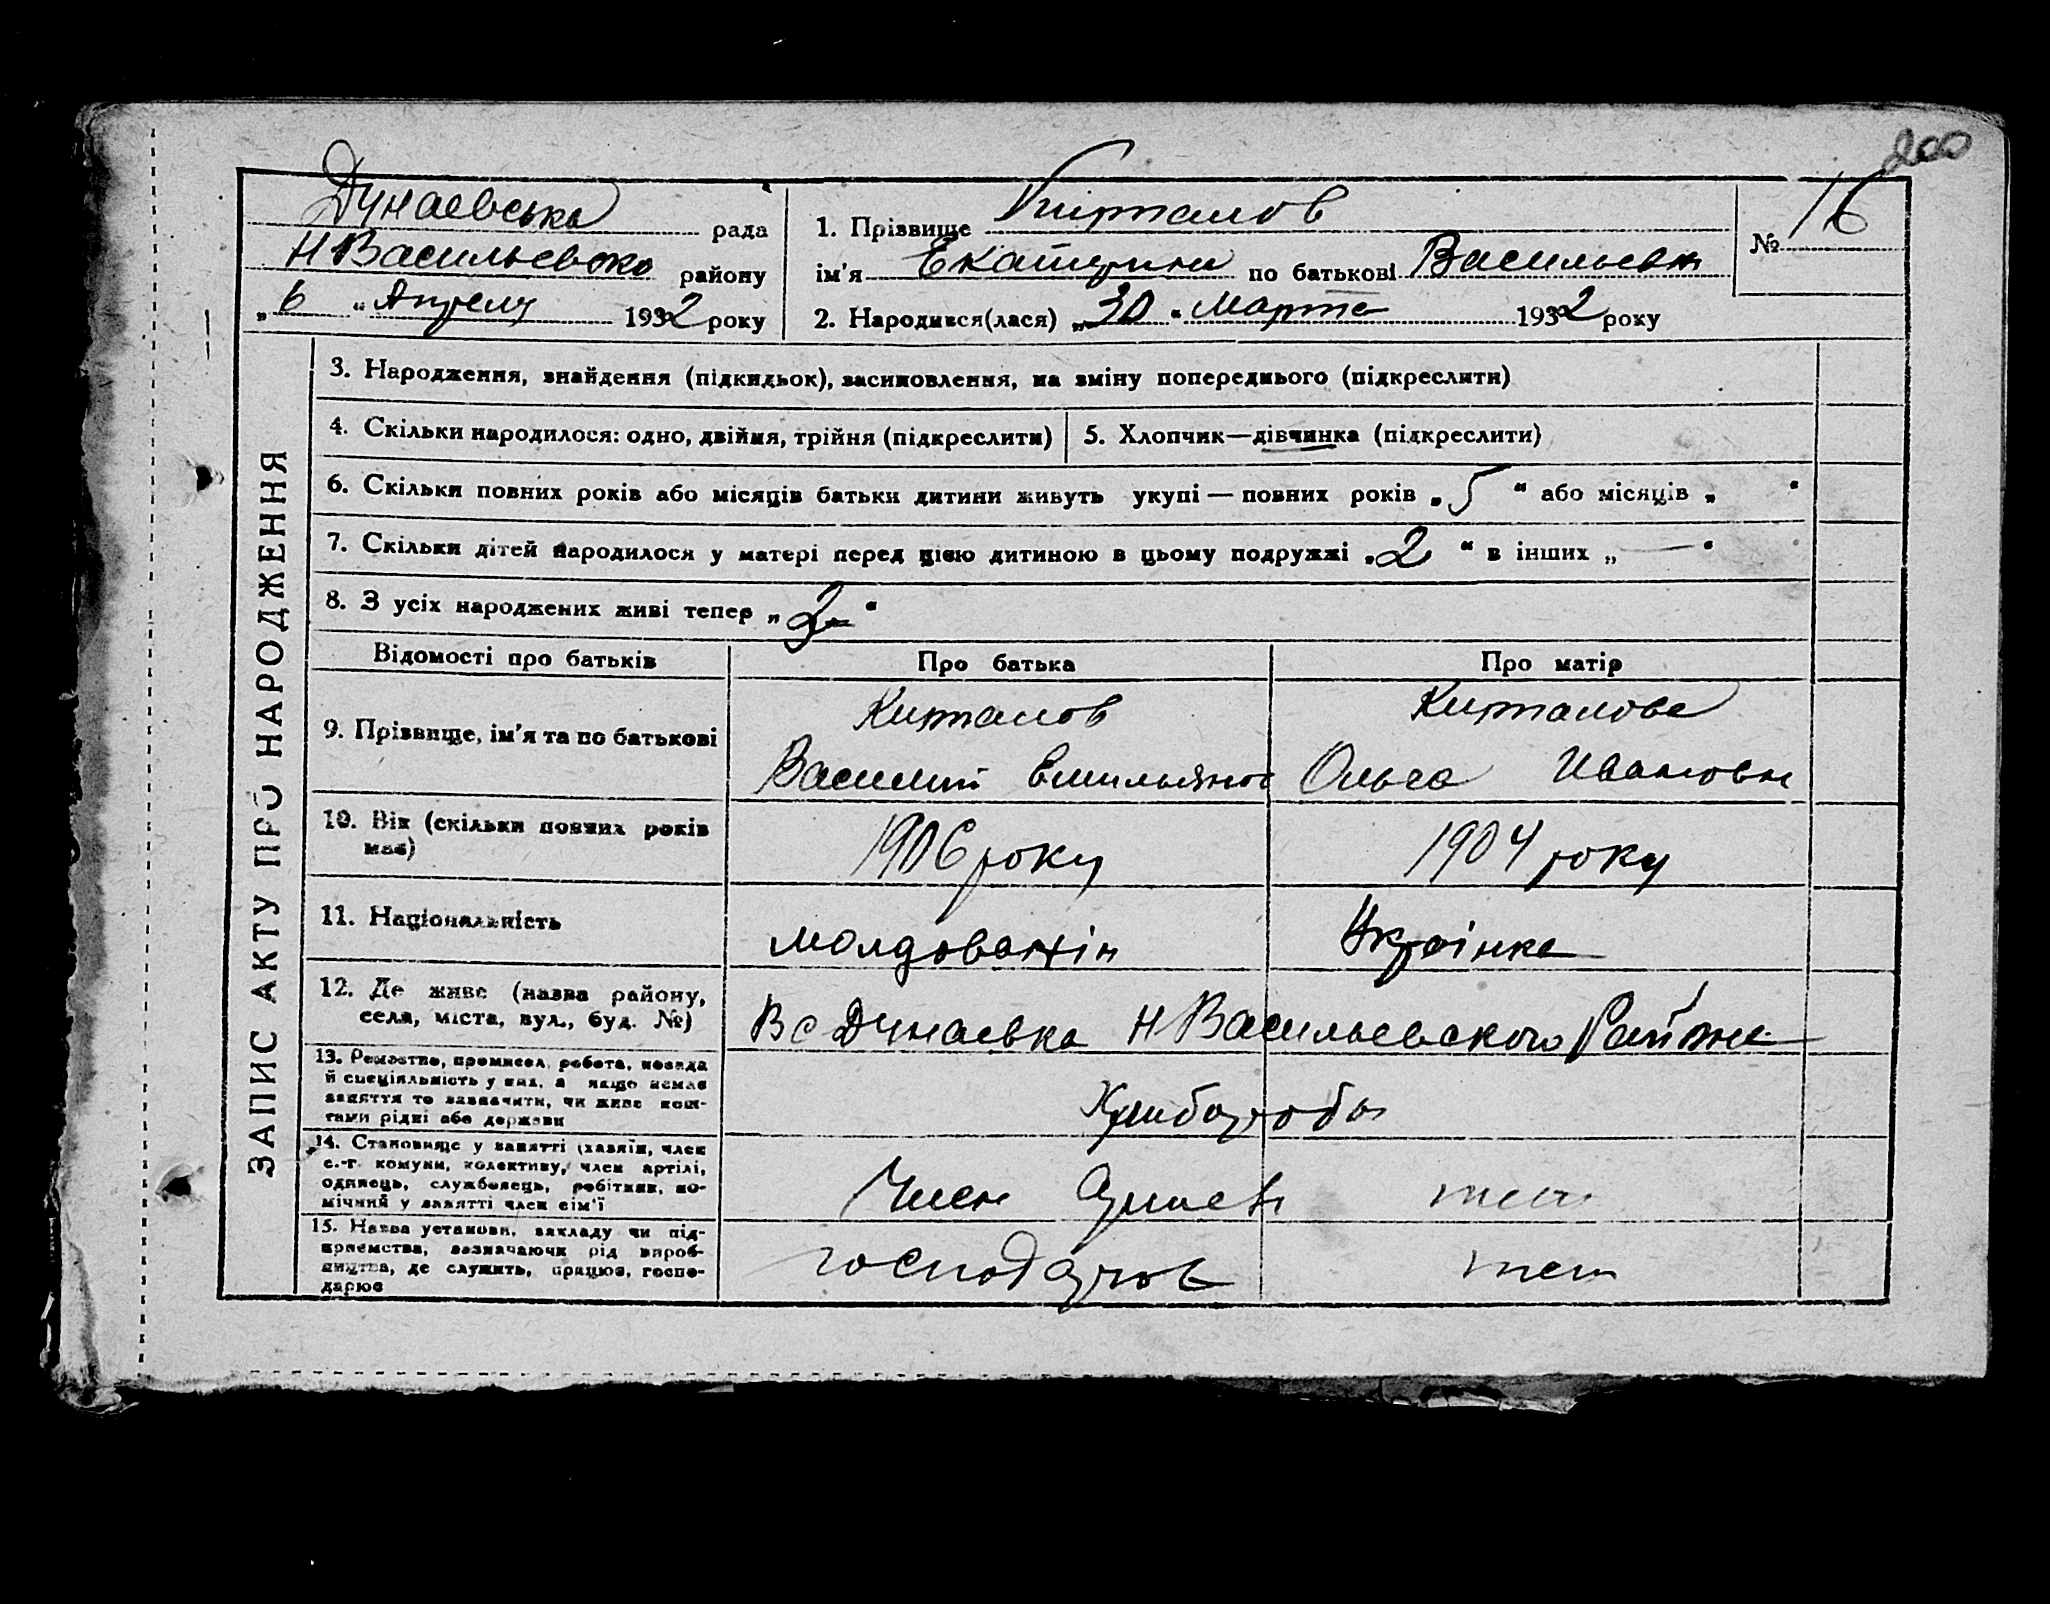 200
Дунаевська рада
Н Васильевско району
„6“ Апреля 1932 року
1. Прізвище Кирталов
ім'я Екатерина по батькові Васильевн
2. Народився(лася) „30“ Марта 1932 року
№ 16
ЗАПИС АКТУ ПРО НАРОДЖЕННЯ
3. Народження, знайдення (підкидьок), засиновлення, на зміну попереднього (підкреслити)
4. Скільки народилося: одно, двійня, трійня (підкреслити)
5. Хлопчик—дівчинка (підкреслити)
6. Скільки повних років або місяців батьки дитини живуть укупі — повних років „5“ або місяців „ “
7. Скільки дітей народилося у матері перед цією дитиною в цьому подружжі „2“ в інших „—“
8. З усіх народжених живі тепер „2“
Відомості про батьків
Про батька
Про матір
9. Прізвище, ім'я та по батькові
Кирталов
Василий Емильянов
Кирталова
Ольга Ивановн
10. Вік (скільки повних років
має)
1906 року
1904 року
11. Національність
молдованін
Українка
12. Де живе (назва району,
села, міста, вул., буд. №)
В с Дунаевка Н Васильевского Района
13. Ремество, промисел, робота, посада
й спеціяльність у них, а якщо немає
заняття то зазначити, чи живе кош-
тами рідні або держави
Хлибороби
14. Становище у занятті (хазяїн, член
с.-г. комуни, колективу, член артілі,
одинець, службовець, робітник, по-
мічний у занятті член сім'ї
Член Артели
тот
15. Назва установи, закладу чи під-
приємства, зазначаючи рід вироб-
ництва, де служить, працює, госпо-
дарює
господарюе